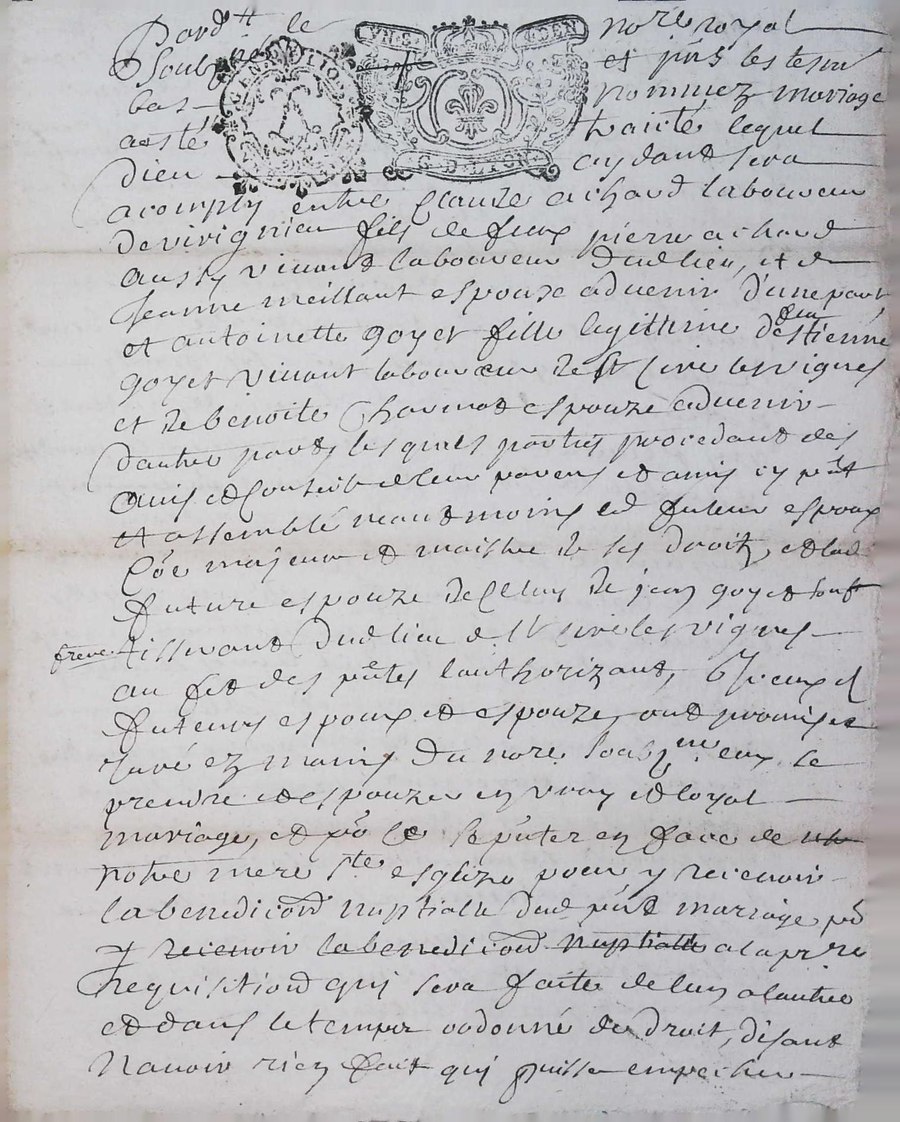 Pardt le nore royal
Soubne et pns les tesm
bas nommez mariage
a esté traicté lequel
Dieu aydant sera
acomply entre Claude achard laboureur
de virignieu fils de feux pierre achard
aussy vivant laboureur dud lieu, et de
Jeanne meillant espoux a duenir d'une part
et antoinette goyet fille legittime d'estienne
feu
goyet vivant laboureur de st Cire les vignes
et de benoite espouze aduenir
dautre part, lesquels parties procedant des
auis et Conseil de leur parens et amis icy pnt
et assemblé neautmoins led futeur espoux
Coe majeur et maistre de ses droit, et lad
future espouze de Celuy de jean goyet son
frere tisserant dud lieu de st sire les vignes
au fet des pntes l'authorizant, Iceux d
futeurs espoux et espouze, ont promis et
Juré ez mains du nore soubne eux se
prendre et espouzer en vray et loyal
mariage, et po ce se pnter en face de
notre mere ste esglize pour y receuoir
la benediction nuptialle dud pnt mariage po
y receuoir la benediction nuptialle a la pre
Requisition qui sera faite de lun a lautre
et dans le temps ordonné de droit, disant
N'auoir rien fait qui puisse empecher
GEN LION
GEN
G. D. LYON